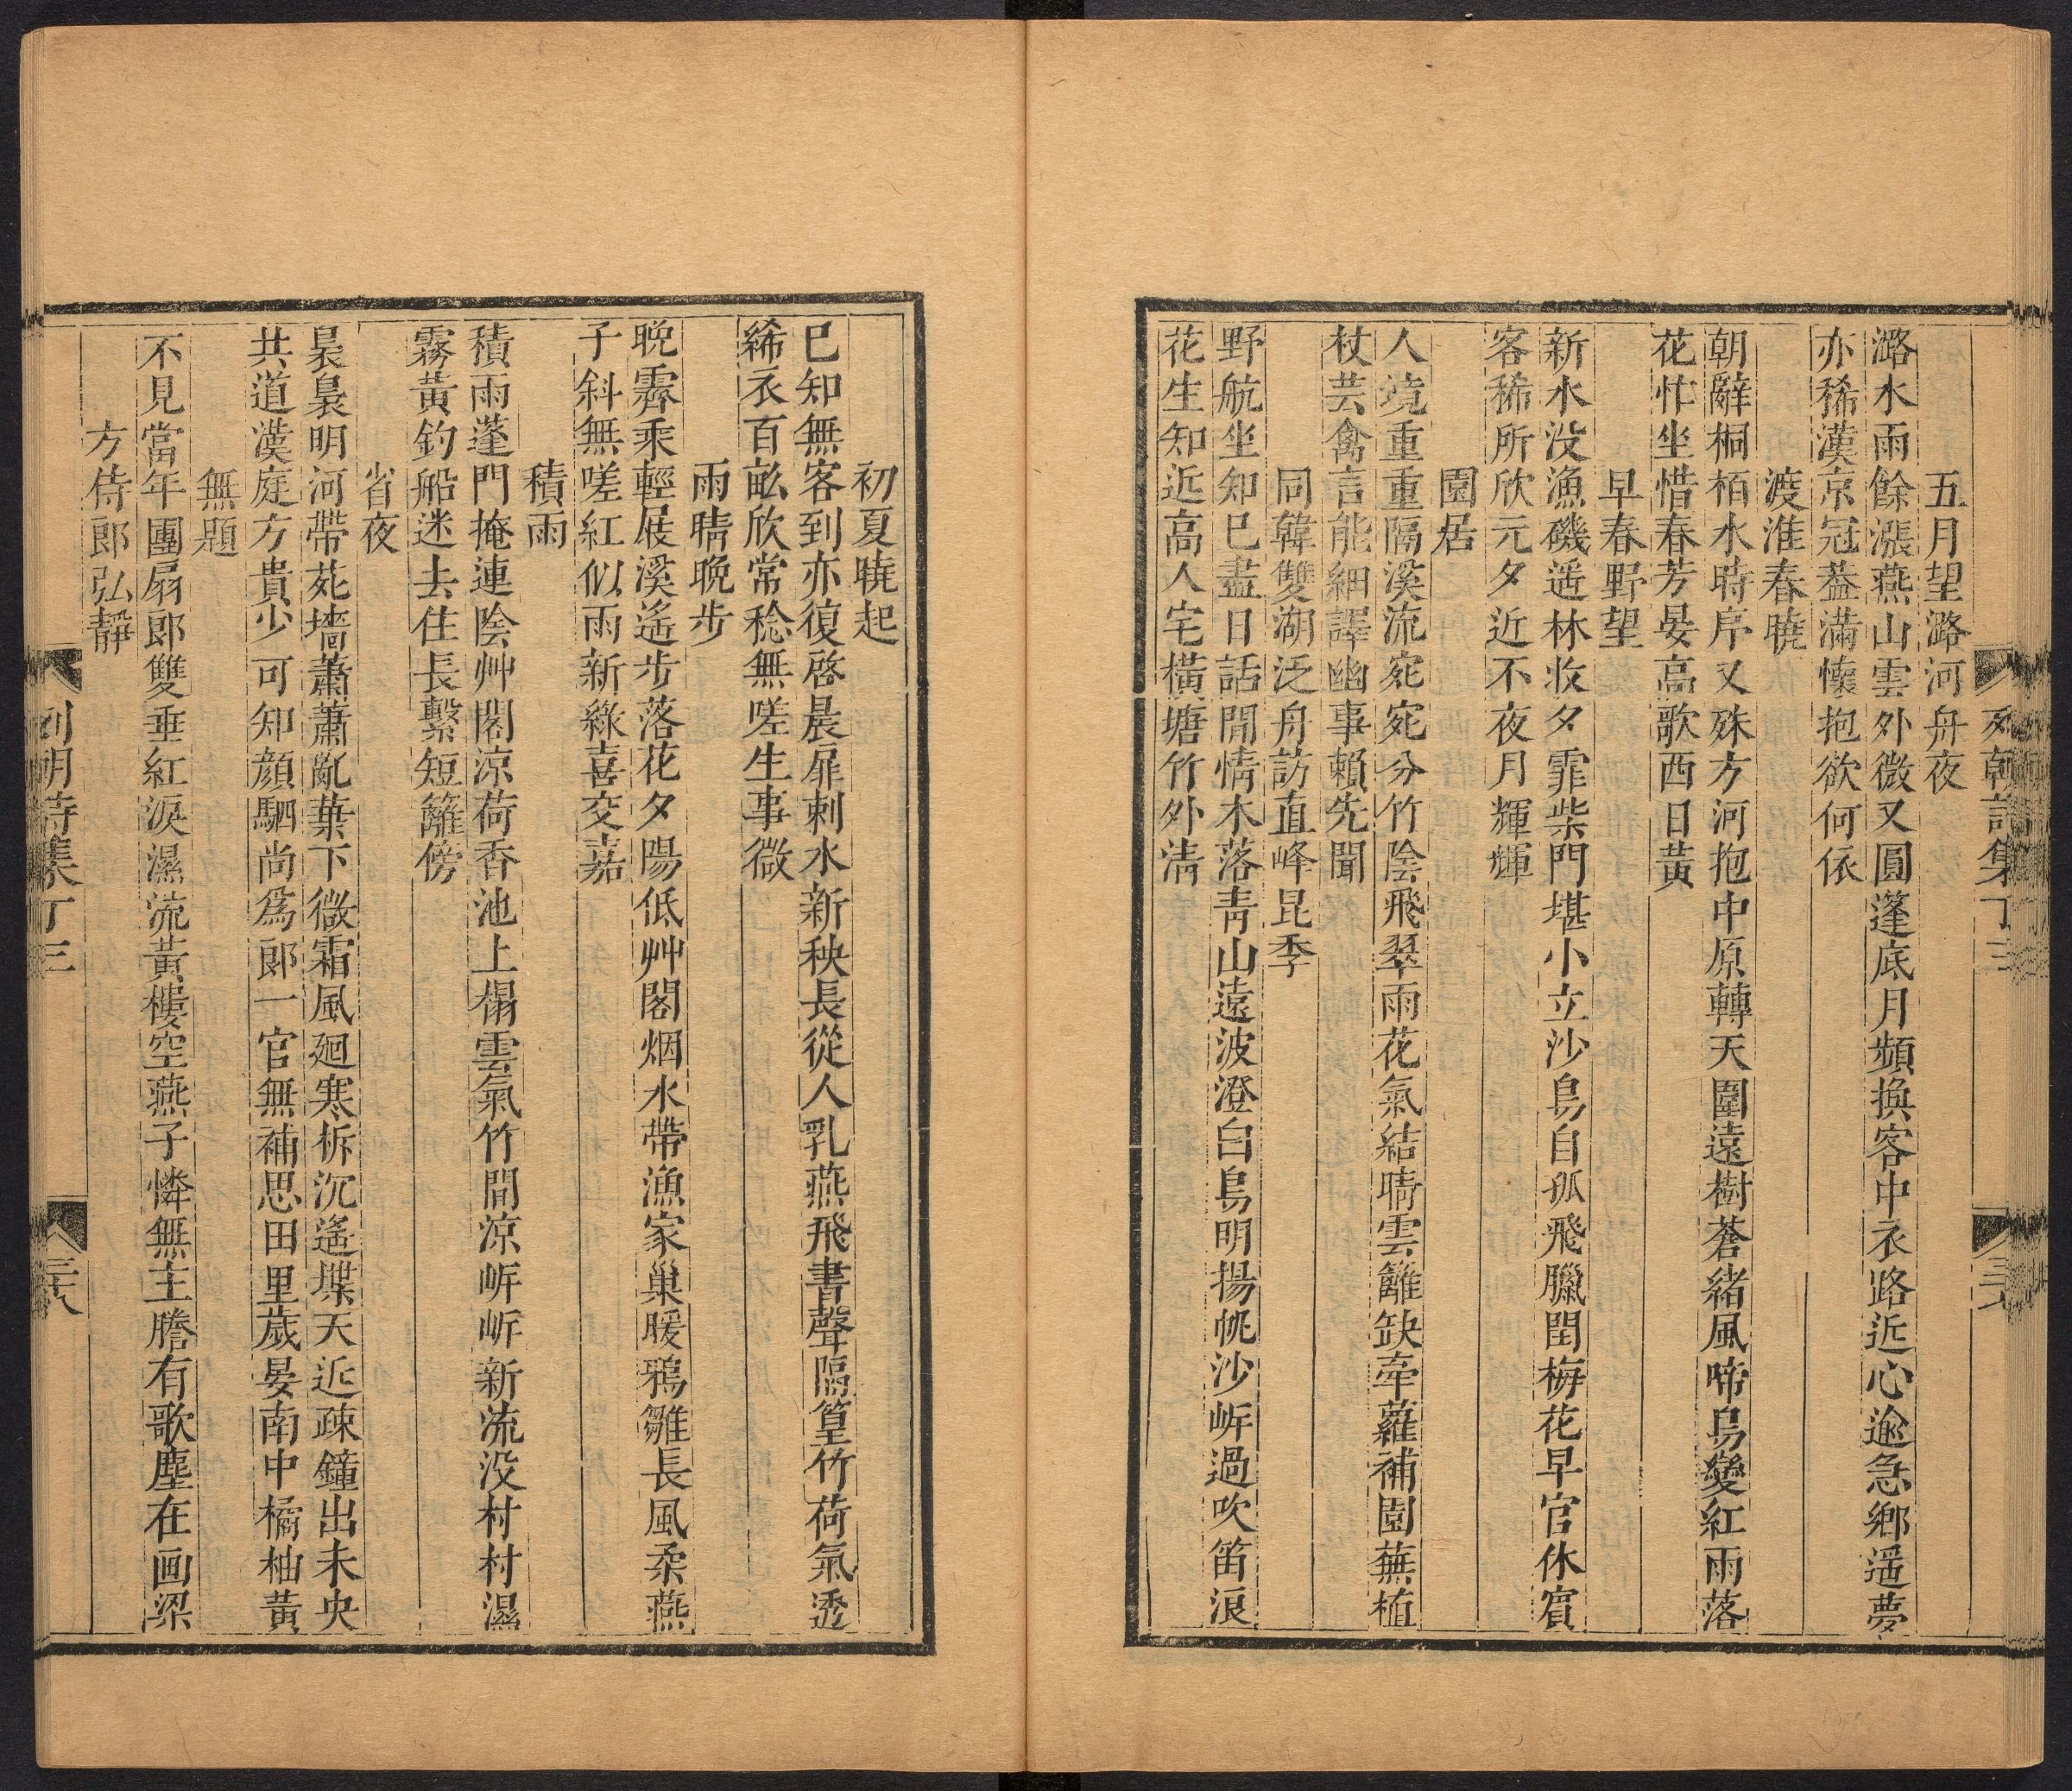 五月望潞河舟夜
潞水雨餘漲燕山雲外微又圓蓬底月頻換客中衣路近心逾急鄉遥夢
亦稀漢京冠葢滿懷抱欲何依
渡淮春曉
朝辭桐栢水時序又殊方河抱中原轉天圍遠樹蒼緒風啼鳥變紅雨落
花忙坐惜春芳晏高歌西日黃
早春野望
新水没漁磯遥林收夕霏柴門堪小立沙鳥自孤飛臘閏梅花早官休賓
客稀所欣元夕近不夜月輝輝
園居
人境重重隔溪流宛宛分竹陰飛翠雨花氣結晴雲籬缺牽蘿補園蕪植
杖芸禽言能細譯幽事賴先聞
同韓雙湖泛舟訪直峰昆季
野航坐知巳盡日話閒情木落青山遠波澄白鳥明揚帆沙㟁過吹笛浪
花生知近高人宅橫塘竹外清
列朝詩集丁三
初夏曉起
巳知無客到亦復啓晨扉刺水新秧長從人乳燕飛書聲隔篁竹荷氣透
絺衣百畝欣常稔無嗟生事微
雨晴晩步
晩霽乘輕屐溪遙步落花夕陽低艸閣烟水帶漁家巢暖鴉雛長風柔燕
子斜無嗟紅似雨新綠喜交嘉
積雨
積雨蓬門掩連陰艸閣凉荷香池上榻雲氣竹間凉㟁㟁新流没村村濕
霧黃釣船迷去住長繫短籬傍
省夜
裊裊明河帶苑墻蕭蕭亂葉下微霜風廻寒柝沉遙堞天近疎鐘出未央
共道漢庭方貴少可知顔駟尚爲郞一官無補思田里歲晏南中橘柚黃
無題
不見當年團扇郞雙垂紅淚濕流黃樓空燕子憐無主謄有歌塵在画梁
方侍郞弘靜
列朝詩集丁三
三十八